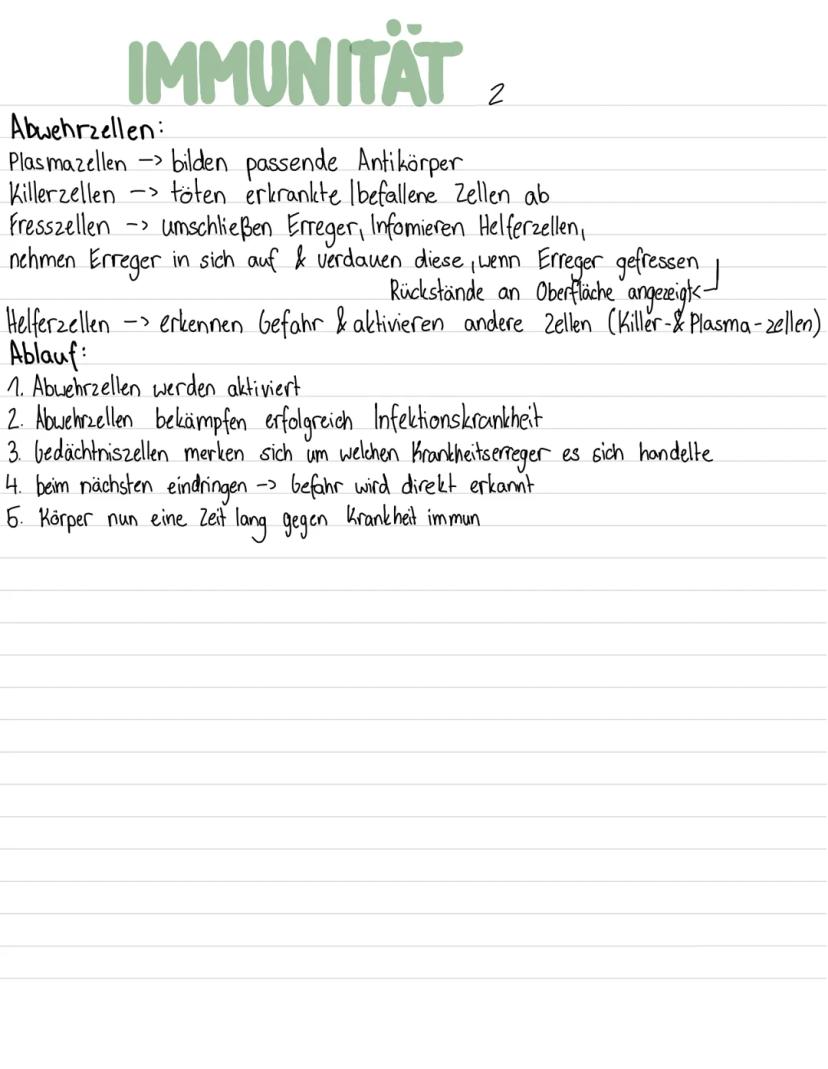 IMMUNITÄT 2
Abwehrzellen:
Plasmazellen -> bilden passende Antikörper
Killerzellen -> töten erkrankte/befallene Zellen ab
Fresszellen -> umschließen Erreger, Infomieren Helferzellen,
nehmen Erreger in sich auf & verdauen diese, wenn Erreger gefressen
Rückstände an Oberfläche angezeigt<-
Helferzellen -> erkennen Gefahr & aktivieren andere Zellen (Killer-& Plasma-zellen)
Ablauf:
1. Abwehrzellen werden aktiviert
2. Abwehrzellen bekämpfen erfolgreich Infektionskrankheit
3. Gedächtniszellen merken sich um welchen Krankheitserreger es sich handelte
4. beim nächsten eindringen -> Gefahr wird direkt erkannt
5. Körper nun eine Zeit lang gegen Krankheit immun